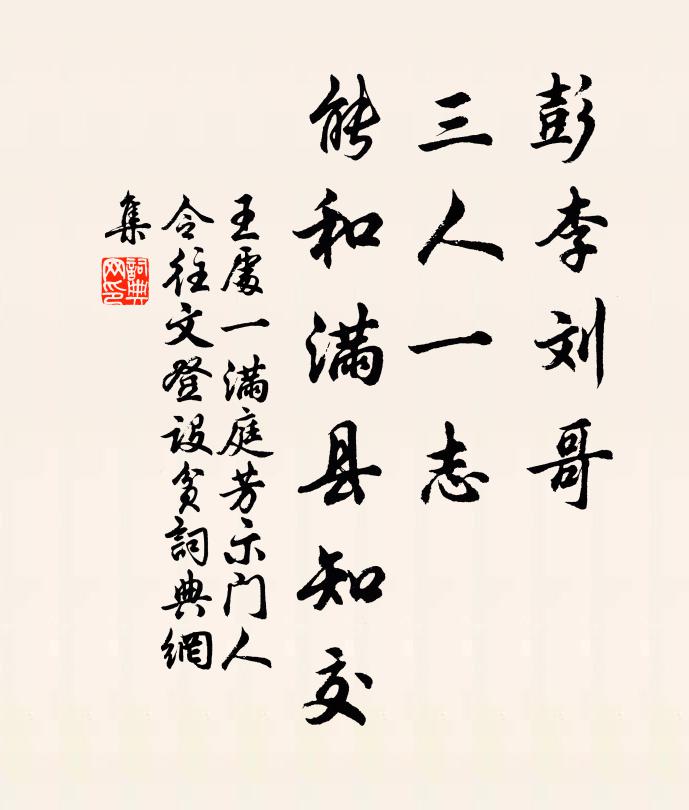 彭李刘哥
三人一志
能和满县知交
王處一满庭芳示门人
令往文登設貧詞典網
集
詞典网印